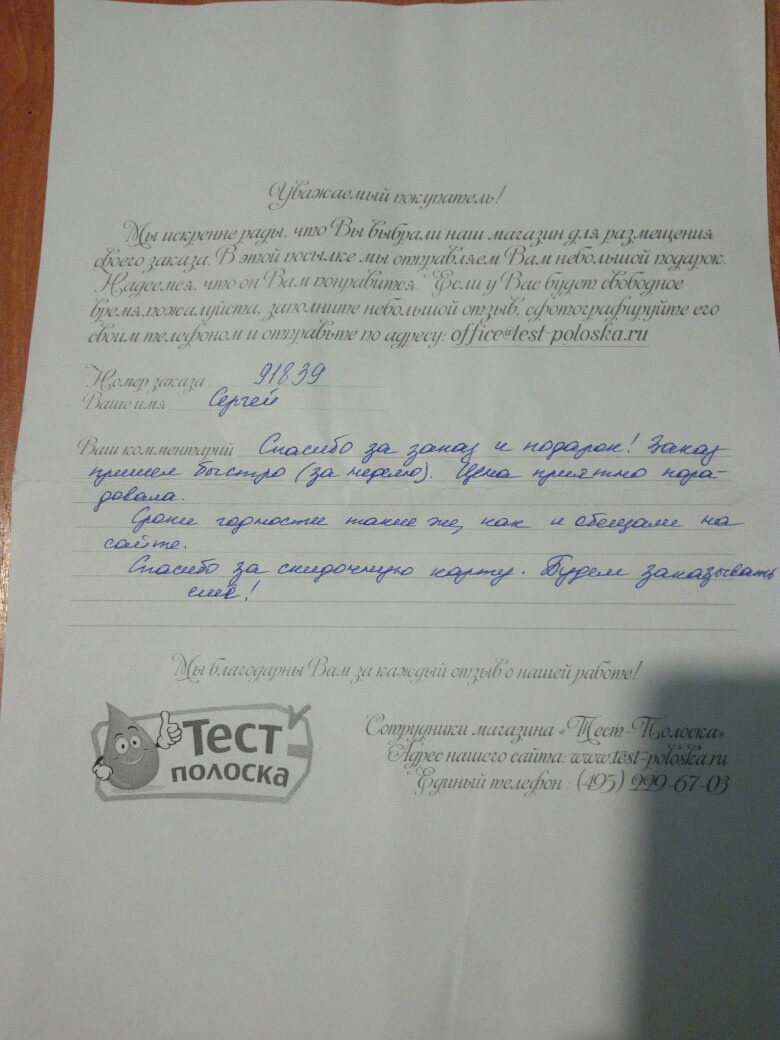 Уважаемый покупатель!
Мы искренне рады, что Вы выбрали наш магазин для размещения
своего заказа. В этой посылке мы отправляем Вам небольшой подарок.
Надеемся, что он Вам понравится. Если у Вас будет свободное
время,пожалуйста, заполните небольшой отзыв, сфотографируйте его
своим телефоном и отправьте по адресу: office@test-poloska.ru
Номер заказа 91839
Ваше имя Сергей
Ваш комментарий Спасибо за заказ и подарок! Заказ
пришел быстро (за неделю). Цена приятно пора-
довала.
Сроки годности такие же, как и обещали на
сайте.
Спасибо за скидочную карту. Будем заказывать
еще!
Мы благодарны Вам за каждый отзыв о нашей работе!
Тест
полоска
Сотрудники магазина «Тест-Полоска»
Адрес нашего сайта: www.test-poloska.ru
Единый телефон : (495) 229-67-03